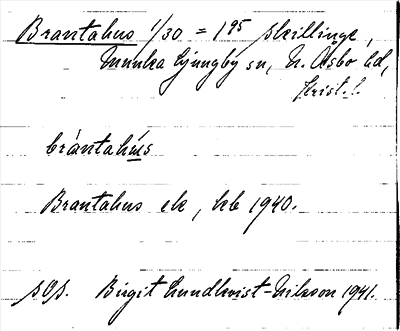 Brantahus 1/30 = 1 95 skillinge,
Munka Ljungby sn, N. Åsbo hd,
Krist. l.
bràntahús
Brantahus ek, kb 1940.
Birgit Lundkvist-Nilsson 1941.